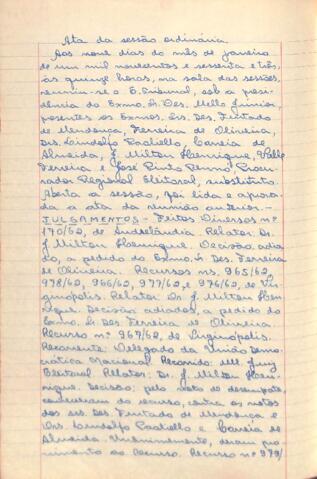 Ata da sessão ordinária
Aos nove dias do mês de janeiro
de um mil novecentos e sessenta e três,
às quinze horas, na sala das sessões,
reuniu-se o E. Tribunal, sob a presi-
dência do Exmo. Sr. Des. Mello Júnior,
presentes os Exmos. srs. Des. Furtado
de Mendonça, Ferreira de Oliveira,
Drs. Lindolfo Paoliello, Correia de
Almeida, J. Milton Henrique, Valle
Ferreira e José Pinto Renno, Procu-
rador Regional Eleitoral, substituto.
Aberta a sessão, foi lida e aprova-
da a ata da reunião anterior.-
JULGAMENTOS - Feitos Diversos nº
170/62, de Andrelândia. Relator: Dr.
J. Milton Henrique. Decisão: adia-
do, a pedido do Exmo. Sr. Des. Ferreira
de Oliveira. Recursos ns. 965/62,
978/62, 966/62, 977/62 e 976/62, de Vir-
ginópolis. Relator: Dr. J. Milton Hen-
rique. Decisão: adiados, a pedido do
Exmo. Sr. Des. Ferreira de Oliveira.
Recurso nº 967/62, de Virginópolis.
Recorrente: Delegado da União Demo-
crática Nacional. Recorrido: MM. Juiz
Eleitoral. Relator: Dr. J. Milton Hen-
rique. Decisão: pelo voto de desempate,
conheceram do recurso, contra os votos
dos srs. Des. Furtado de Mendonça e
Drs. Lindolfo Paoliello e Correia de
Almeida. Unanimemente, deram pro-
vimento ao recurso. Recurso nº 979/